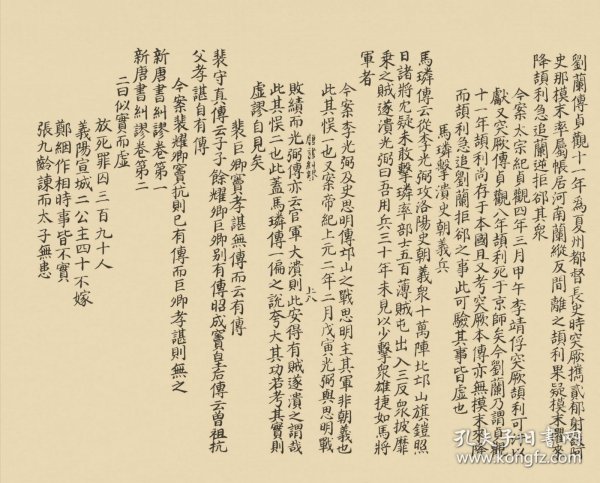 劉蘭傳貞觀十一年為夏州都督長史時突厥攜貳郁射設阿
史那摸末率屬帳居河南蘭縱反間離之頡利果疑摸末懼來
降頡利急追蘭逆拒郤其衆
今案太宗紀貞觀四年三月甲午李靖俘突厥頡利可汗以
獻又突厥傳貞觀八年頡利死于京師矣今劉蘭乃謂貞觀
十一年頡利尚存于本國且又考突厥本傳亦無摸末來降
而頡利急追劉蘭拒郤之事此可驗其事皆虛也
馬璘擊潰史朝義兵
馬璘傳云從李光弼攻洛陽史朝義衆十萬陣比邙山旗鎧照
日諸將冘疑未敢擊璘率部士五百薄賊屯出入三反衆披靡
乘之賊遂潰光弼曰吾用兵三十年未見以少擊衆雄捷如馬將
軍者
今案李光弼及史思明傳邙山之戰思明主其軍非朝義也
此其悮一也又案帝紀上元二年二月戊寅光弼與思明戰
唐書糾繆
上六
敗績而光弼傳亦云官軍大潰則此安得有賊遂潰之謂哉
此其悮二也此蓋馬璘傳一偏之說夸大其功若考其實則
虛謬自見矣
裴巨卿竇孝諶無傳而云有傳
裴守真傳云子子餘耀卿巨卿别有傳昭成竇皇后傳云曾祖抗
父孝諶自有傳
今案裴耀卿竇抗則已有傳而巨卿孝諶則無之
新唐書糾謬卷第一
新唐書糾謬卷第二
二曰似實而虛
放死罪囚三百九十人
義陽宣城二公主四十不嫁
鄭絪作相時事皆不實
張九齡諫而太子無患
孔夫子旧书网